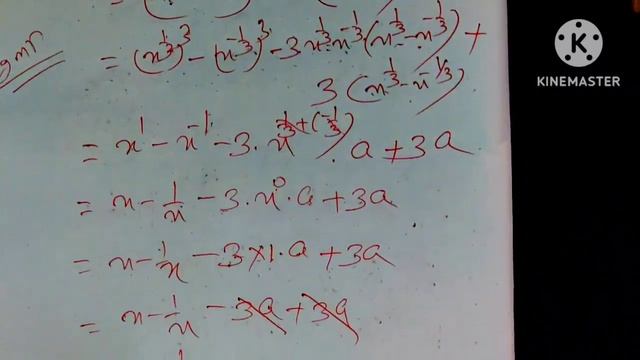 = (x^{1/3})^3 - (x^{-1/3})^3 - 3x^{1/3}x^{-1/3}(x^{1/3} - x^{-1/3}) +
3(x^{1/3} - x^{-1/3})
= x^1 - x^{-1} - 3.x^{1/3+(-1/3)}.a + 3a
= x - 1/x - 3.x^0.a + 3a
= x - 1/x - 3×1.a + 3a
= x - 1/x - 3a + 3a
K
KINEMASTER